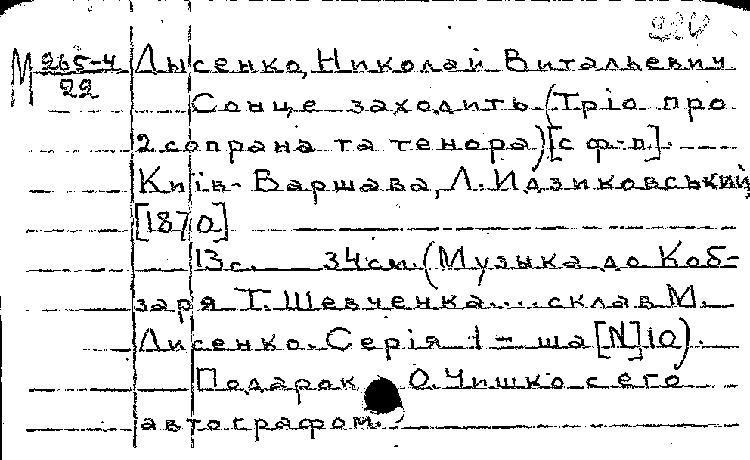 224
М 265-4/22
Лысенко, Николай Витальевич
Сонце заходить (Тріо про
2 сопрана та тенора) [с ф-п].
Київ-Варшава, Л. Идзиковський,
[1870]
13 с. 34 см. (Музыка до Коб-
заря Т. Шевченка.... склав М.
Лисенко. Серія 1-ша [N] 10).
Подарок О. Чишко с его
автографом.